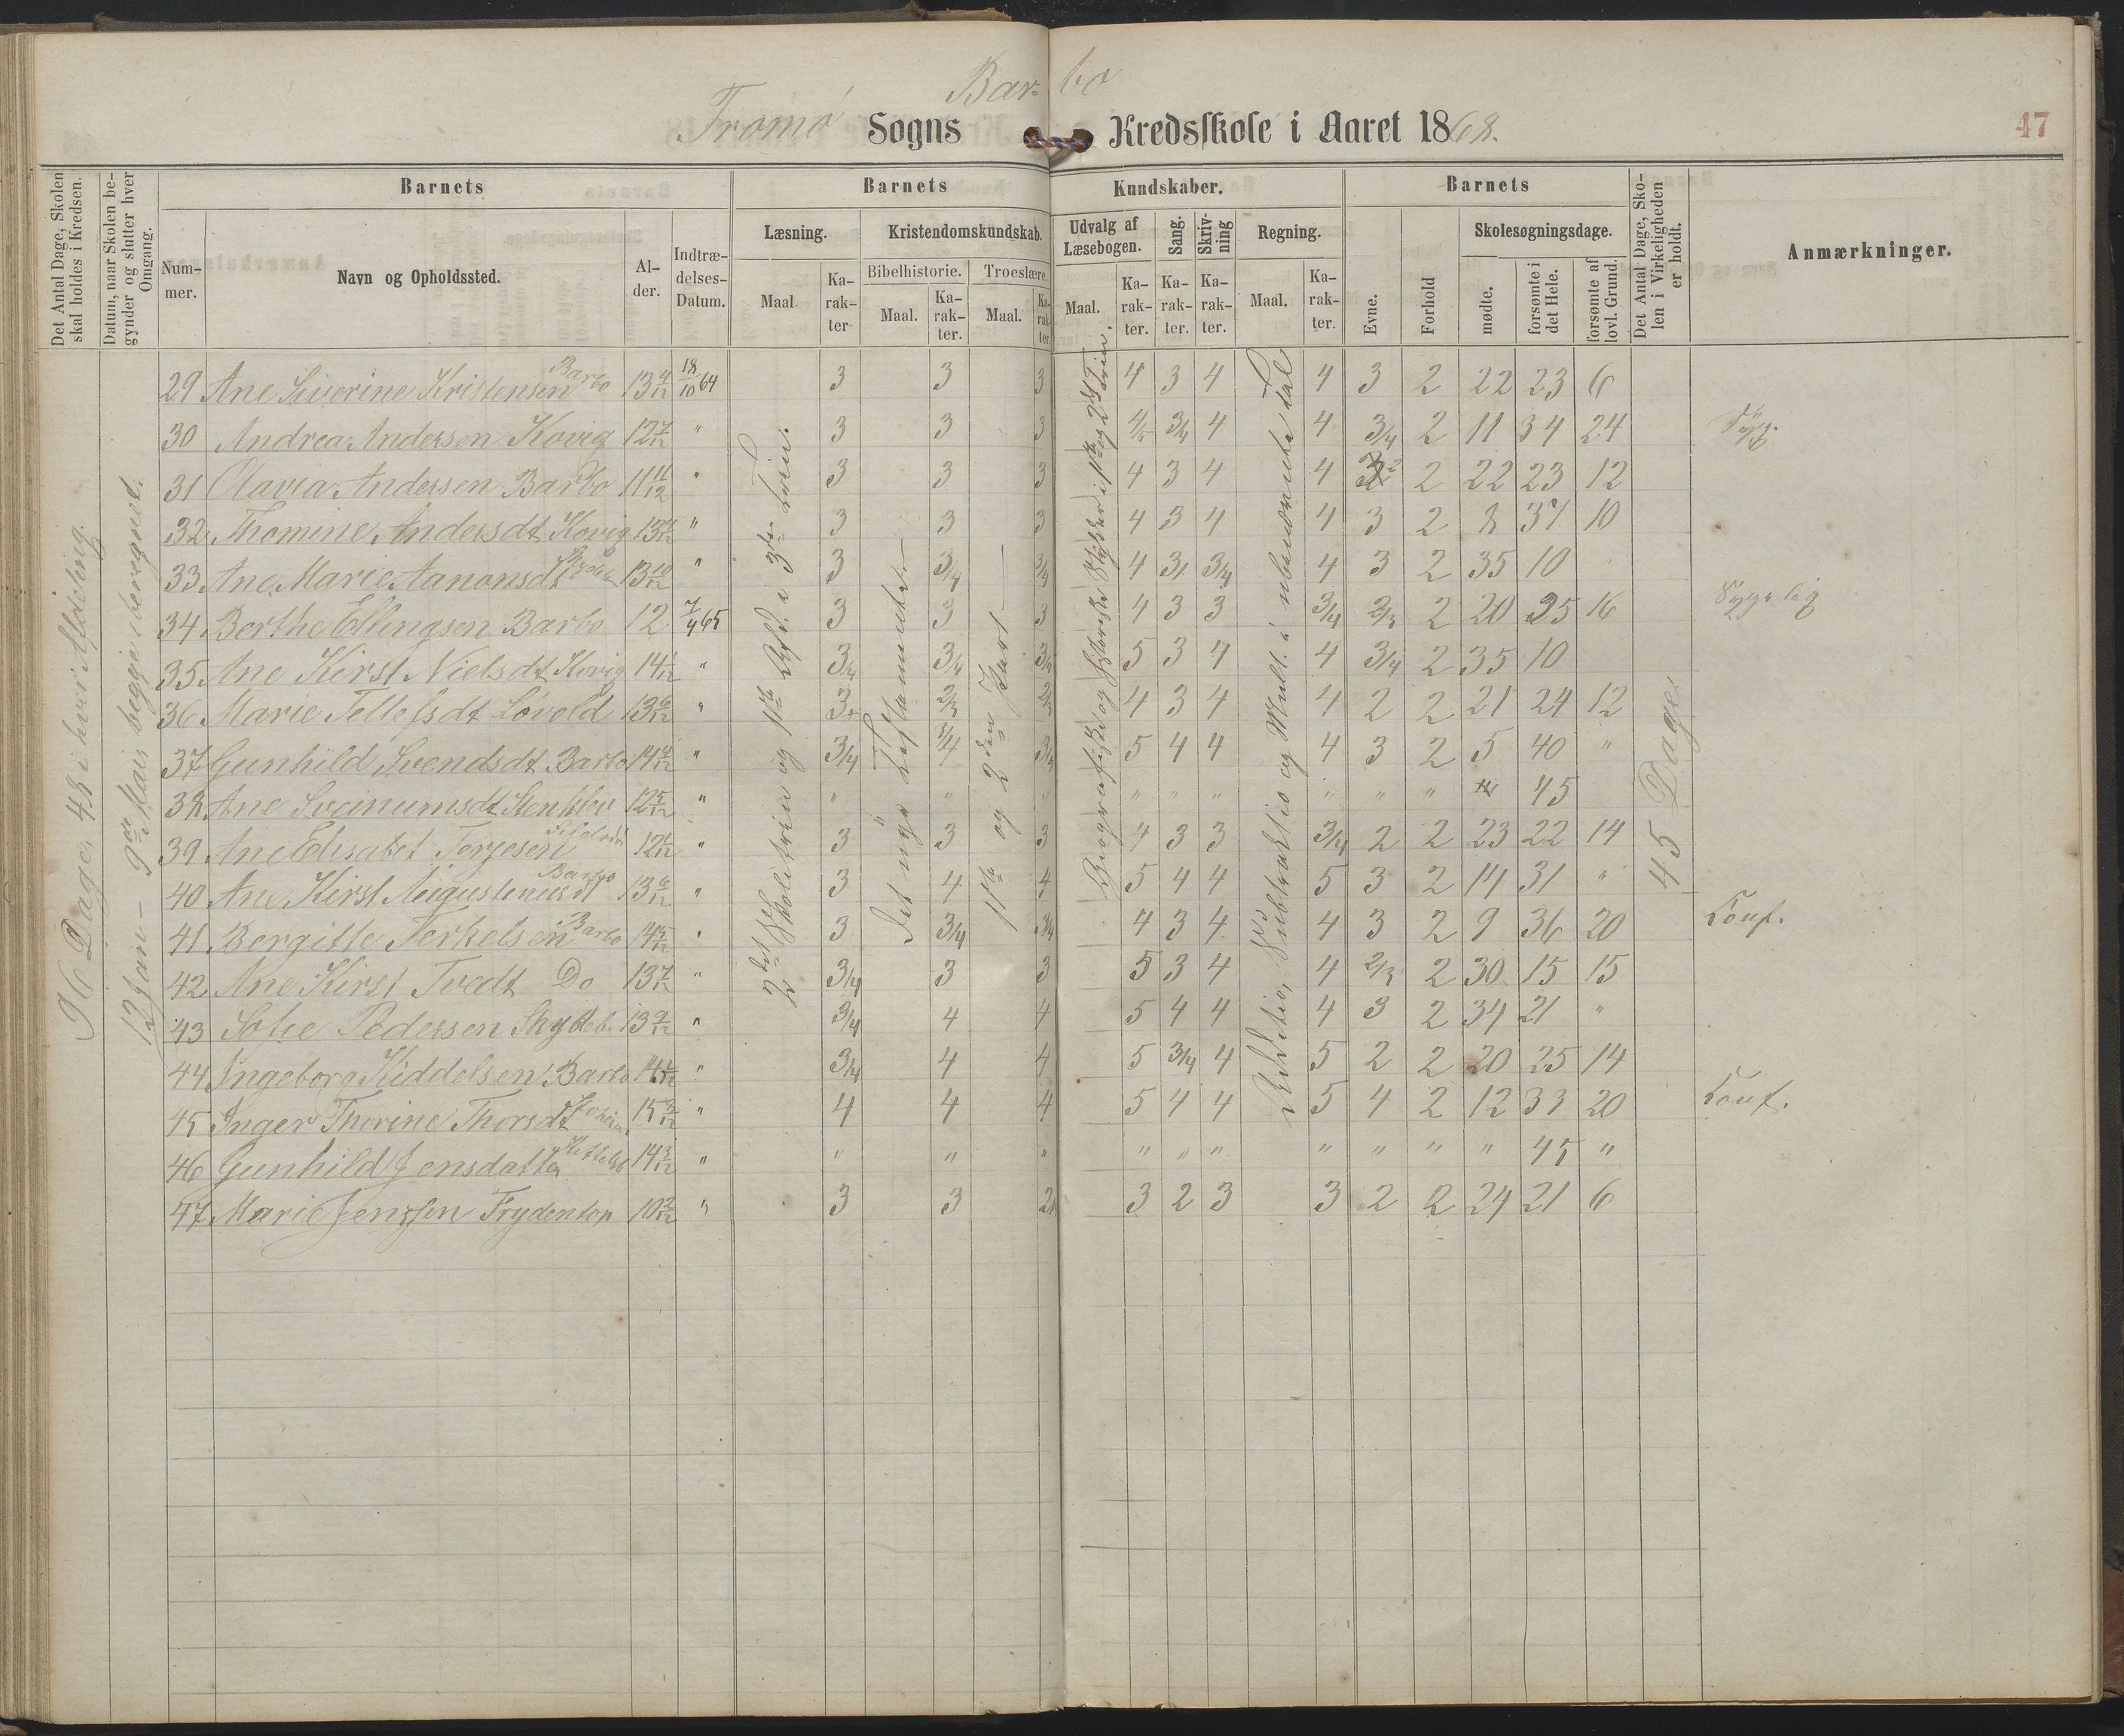 Bar- bo
Tromø Sogns Kredsskole i Aaret 1868.
47
Det Antal Dage, Skolen skal holdes i Kredsen.
Datum, naar Skolen begynder og slutter hver Omgang.
Barnets
Barnets
Kundskaber.
Barnets
Det Antal Dage, Skolen i Virkeligheden er holdt.
Anmærkninger.
Nummer.
Navn og Opholdssted.
Alder.
Indtrædelses-Datum.
Læsning.
Kristendomskundskab.
Udvalg af Læsebogen.
Sang.
Skrivning
Regning.
Evne.
Forhold
Skolesøgningsdage.
Bibelhistorie.
Troeslære.
Maal.
Karakter
Maal.
Karakter.
Maal.
Karakter.
Maal.
Karakter.
Karakter.
Karakter.
Maal.
Karakter.
mødte.
forsømte i det Hele.
forsømte af lovl. Grund.
96 Dage, 48 i hver Afdeling.
13 Jan - 9de Mais begge iberegnet.
2det Skoletrin og 1ste Afd. i 3die Trin.
Det nye Testamente
1ste og 2den Part
Biografiske og historiske Stykker i 1ste og 2det Trin.
Addition, Subtraktion og Mult. i ubenævnte Tal
45 Dage
29 Ane Siverine Kristensen Barbo 13 4/12 18/10 64 3 3 3 4 3 4 4 3 2 22 23 6
30 Andrea Andersen Kovig 12 7/12 " 3 3 3 4/5 3/4 4 4 3/4 2 11 34 24 Syg.
31 Olavia Andersen Barbo 11 11/12 " 3 3 3 4 3 4 4 2 22 23 12
32 Thomine Andersdt Kovig 13 " 3 3 3 4 3 4 4 3 2 8 37 10
33 Ane Marie Aanonsdt 13 10/12 " 3 3/4 3/4 4 3/ 3/4 4 3 2 35 10
34 Berthe Ellingsen Barbo 12 7/4 65 3 3 3 4 3 3 3/4 2/3 2 20 25 16 Sygelig
35 Ane Kirst Nielsdt Kovig 14 1/12 " 3/4 3/4 3/4 5 3 4 4 3/4 2 35 10
36 Marie Tellefsdt Løvold 13 6/12 " 3 2/3 2/3 4 3 4 4 2 2 21 24 12
37 Gunhild Svendsdt Barbo 14 4/12 " 3/4 3/4 3/4 5 4 4 4 3 2 5 40 "
38 Ane 12 5/12 " " " " " " " " " " 45
39 Ane Elisabet Terjesen 12 " 3 3 3 4 3 3 3/4 2 2 23 22 14
40 Ane Kirst Augustinusdt Barbo 13 6/12 " 3 4 4 5 4 4 5 3 2 14 31 "
41 Bergitte Terkelsen Barbo 14 5/12 " 3 3/4 3/4 4 3 4 4 3 2 9 36 20 Konf.
42 Ane Kirst Tvedt Do 13 7/12 " 3/4 3 3 5 3 4 4 2/3 2 30 15 15
43 Sofie Pedersen Skytteb. 13 9/12 " 3/4 4 4 5 4 4 4 3 2 34 21 "
44 Ingeborg Kiddelsen Barbo 14 " 3/4 4 4 5 3/4 4 5 2 2 20 25 14
45 Inger Thorine Thorsdt 15 " 4 4 4 5 4 4 5 4 2 12 33 20 Konf.
46 Gunhild Jensdatter 14 3/12 " " " " " " " " " " " 45 "
47 Marie Jenssen Frydentop 10 " 3 3 2 3 2 3 3 2 2 24 21 6